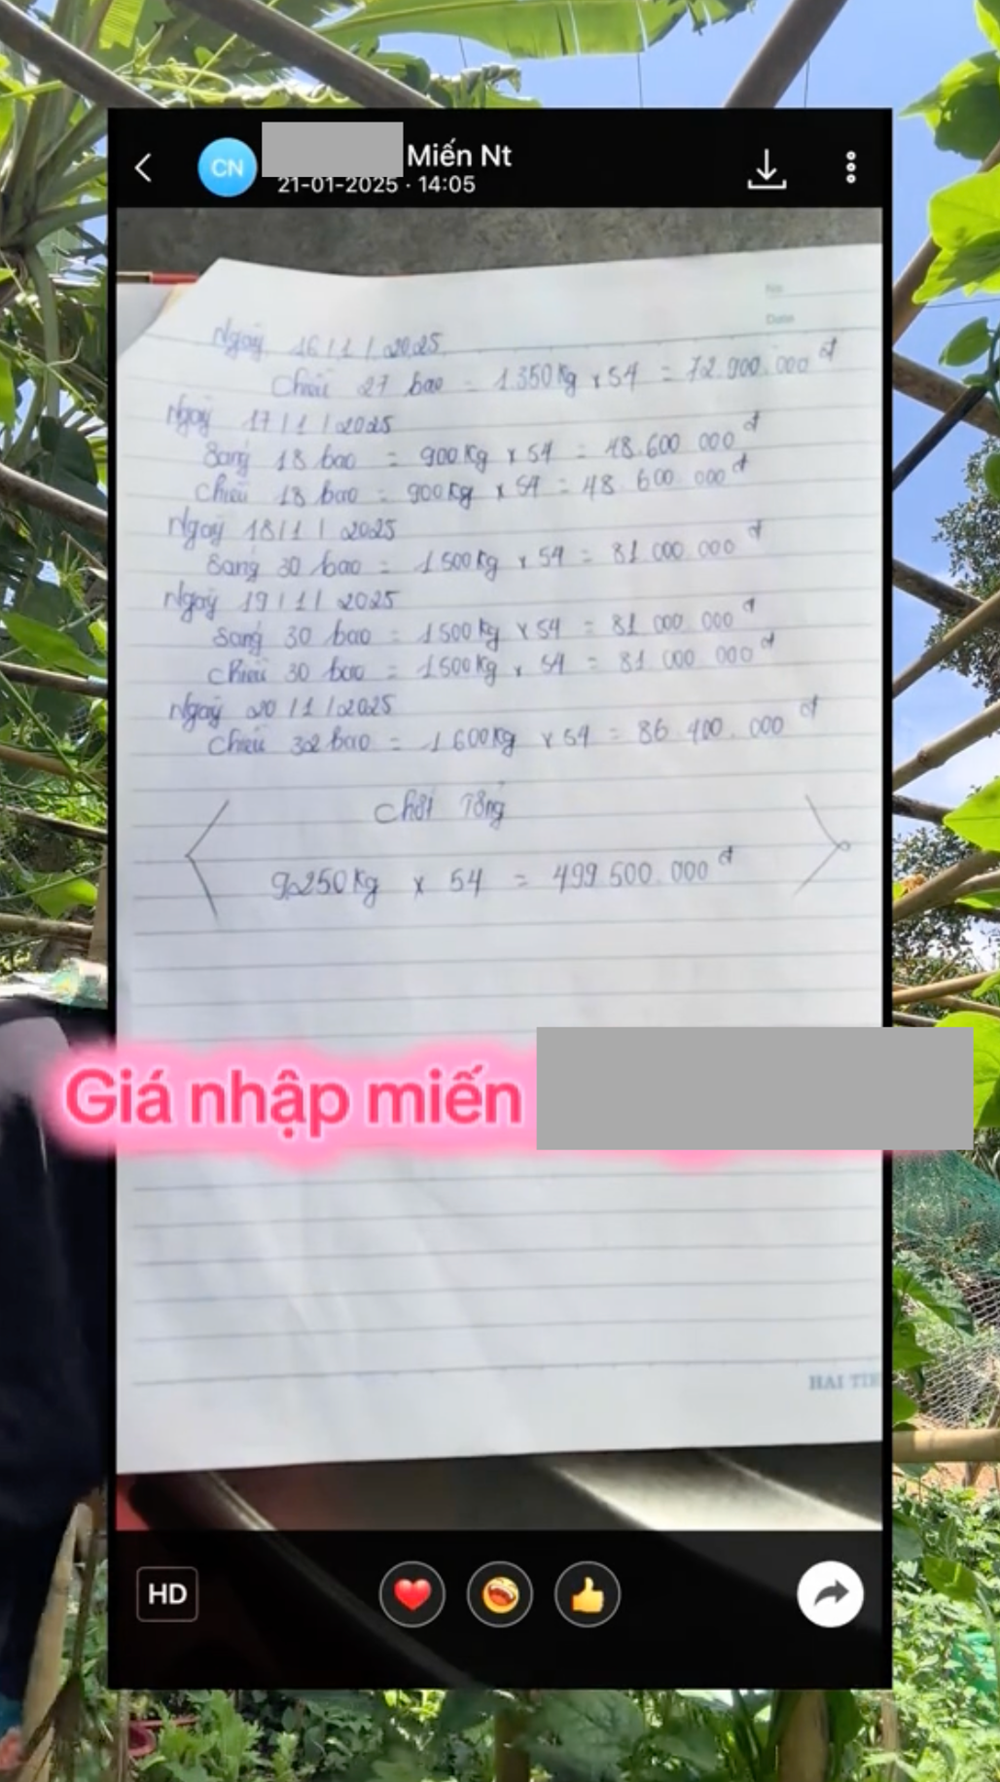 CN
Miến Nt
21-01-2025 · 14:05
No
Date
Ngày 16/1/2025
Chiều 27 bao = 1350kg x 54 = 72.900.000đ
Ngày 17/1/2025
Sáng 18 bao = 900kg x 54 = 48.600.000đ
Chiều 18 bao = 900kg x 54 = 48.600.000đ
Ngày 18/1/2025
Sáng 30 bao = 1500kg x 54 = 81.000.000đ
Ngày 19/1/2025
Sáng 30 bao = 1500kg x 54 = 81.000.000đ
Chiều 30 bao = 1500kg x 54 = 81.000.000đ
Ngày 20/1/2025
Chiều 32 bao = 1600kg x 54 = 86.400.000đ
Chốt Tổng
9.250kg x 54 = 499.500.000đ
Giá nhập miến
HAI TIE
HD